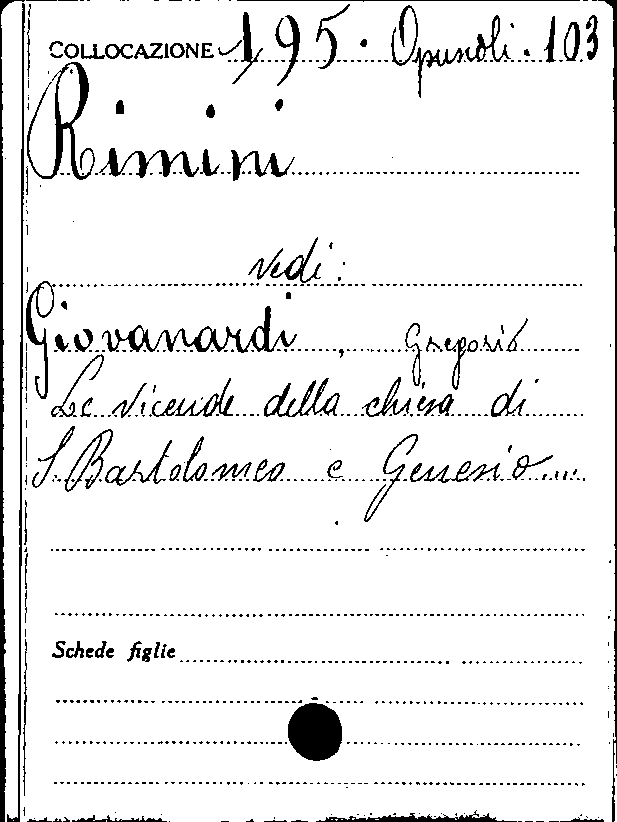 COLLOCAZIONE 195. Opuscoli. 103
Rimini
vedi:
Giovanardi, Gregorio
Le vicende della chiesa di
S. Bartolomeo e Genesio....
Schede figlie